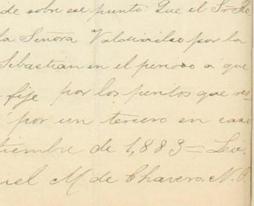 de sobre ese punto Que el Señor
la Señora Valdivielso por la
Sebastian en el periodo a que
fije por los puntos que
por un tercero en caso
tiembre de 1,883 = Lo,
uel M de Chavero N. P.